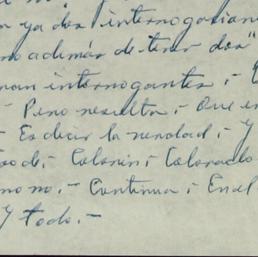 ya dos interrogacion
no además de tener dos"
nan interrogantes ;-
- Pero resulta ;- Que en
- Es decir la verdad ;- Y
Colorin ;- Colorado
mo no ;- Continua ;- En el
Y todo.-